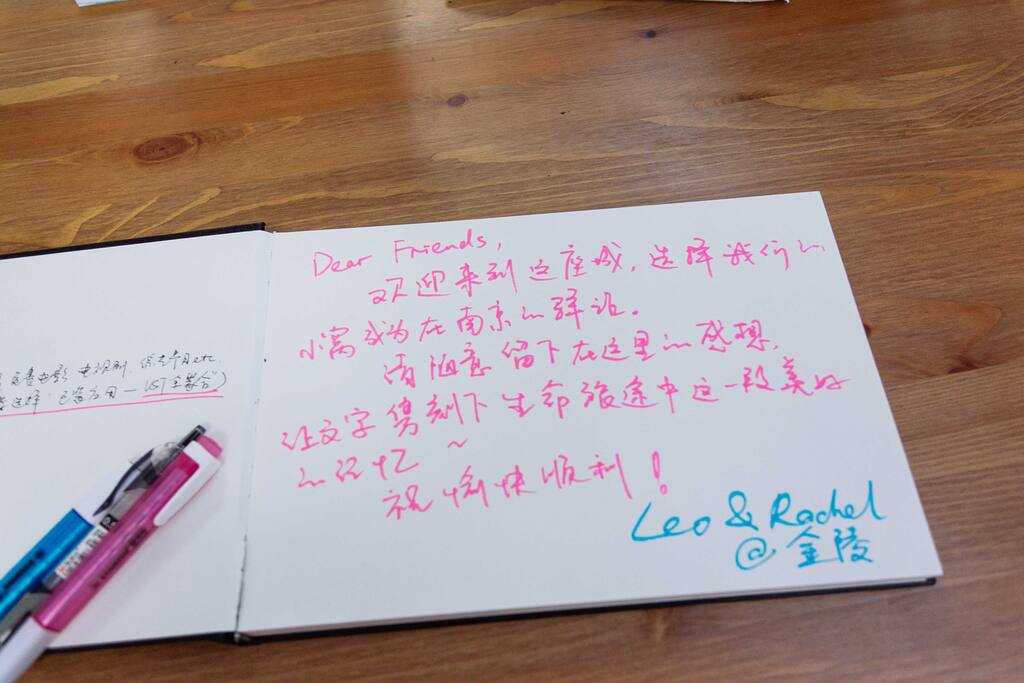 免费电影 电视剧 综艺节目etc
选择"已安应用一
Dear Friends,
欢迎来到这座城,选择我们的
小窝成为在南京的驿站。
请随意留下在这里的感想,
让文字镌刻下生命旅途中这一段美好
的记忆~
祝愉快顺利!
Leo & Rachel
@金陵